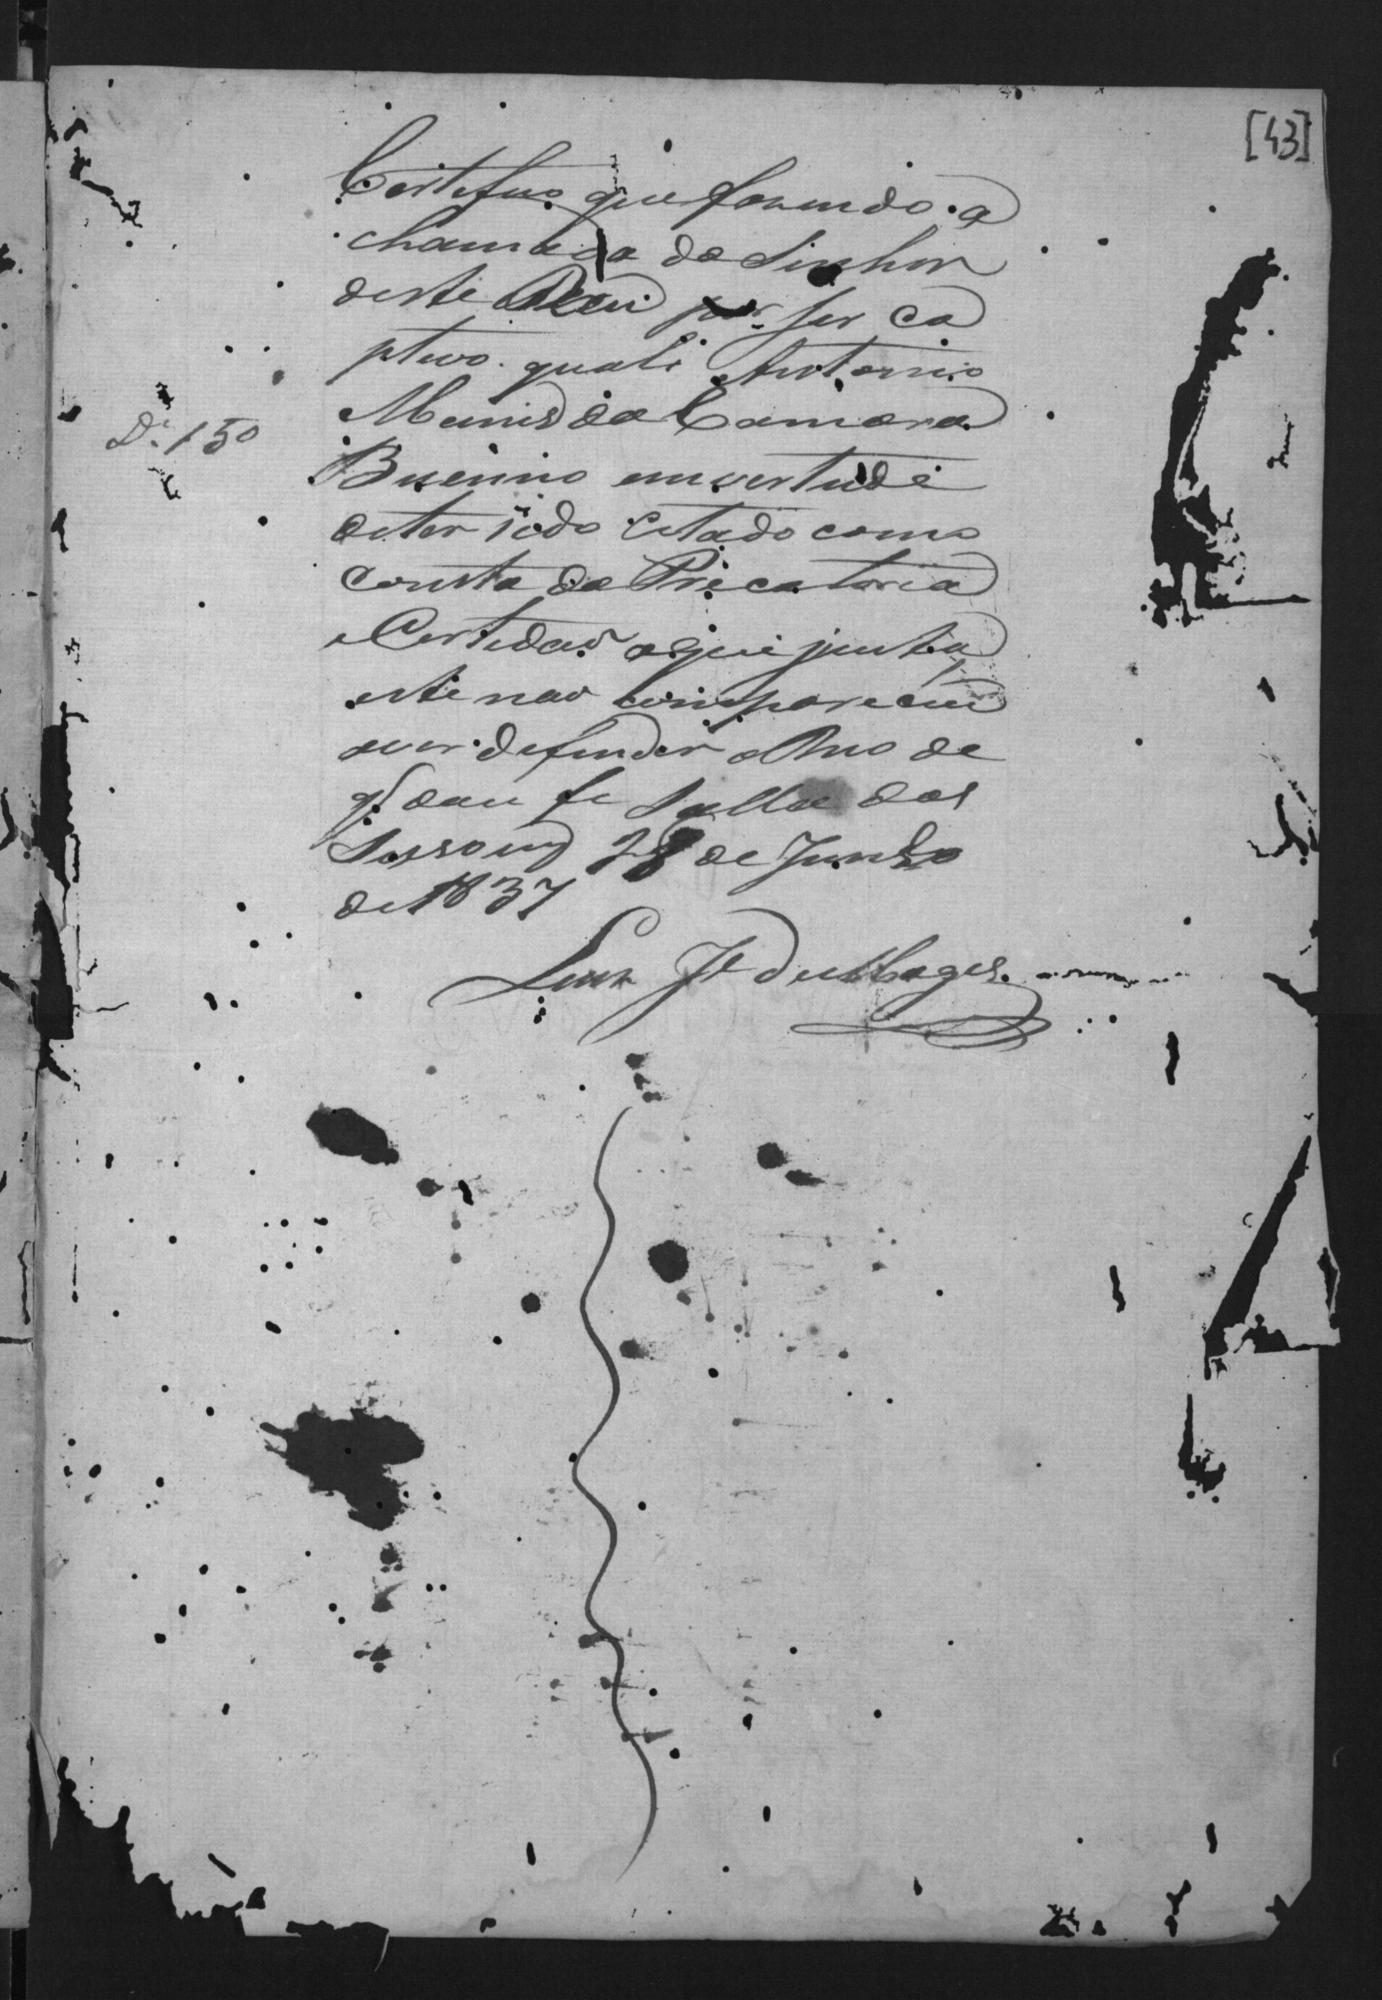 [43]
Certefico que fazendo a
chamada do Sinhor
deste Reu por ser ca
ptivo qual é Antonio
Manoel da Camara
Buenno em vertude
de ter sido Citado como
consta da Precatoria
e Certidaõ aqui junta
este nao compareceu
a ver defender o Reo de
q. dou fe Salla das
Sessoens 28 de Junho
de 1837
D. 150
Luis Je de Mages